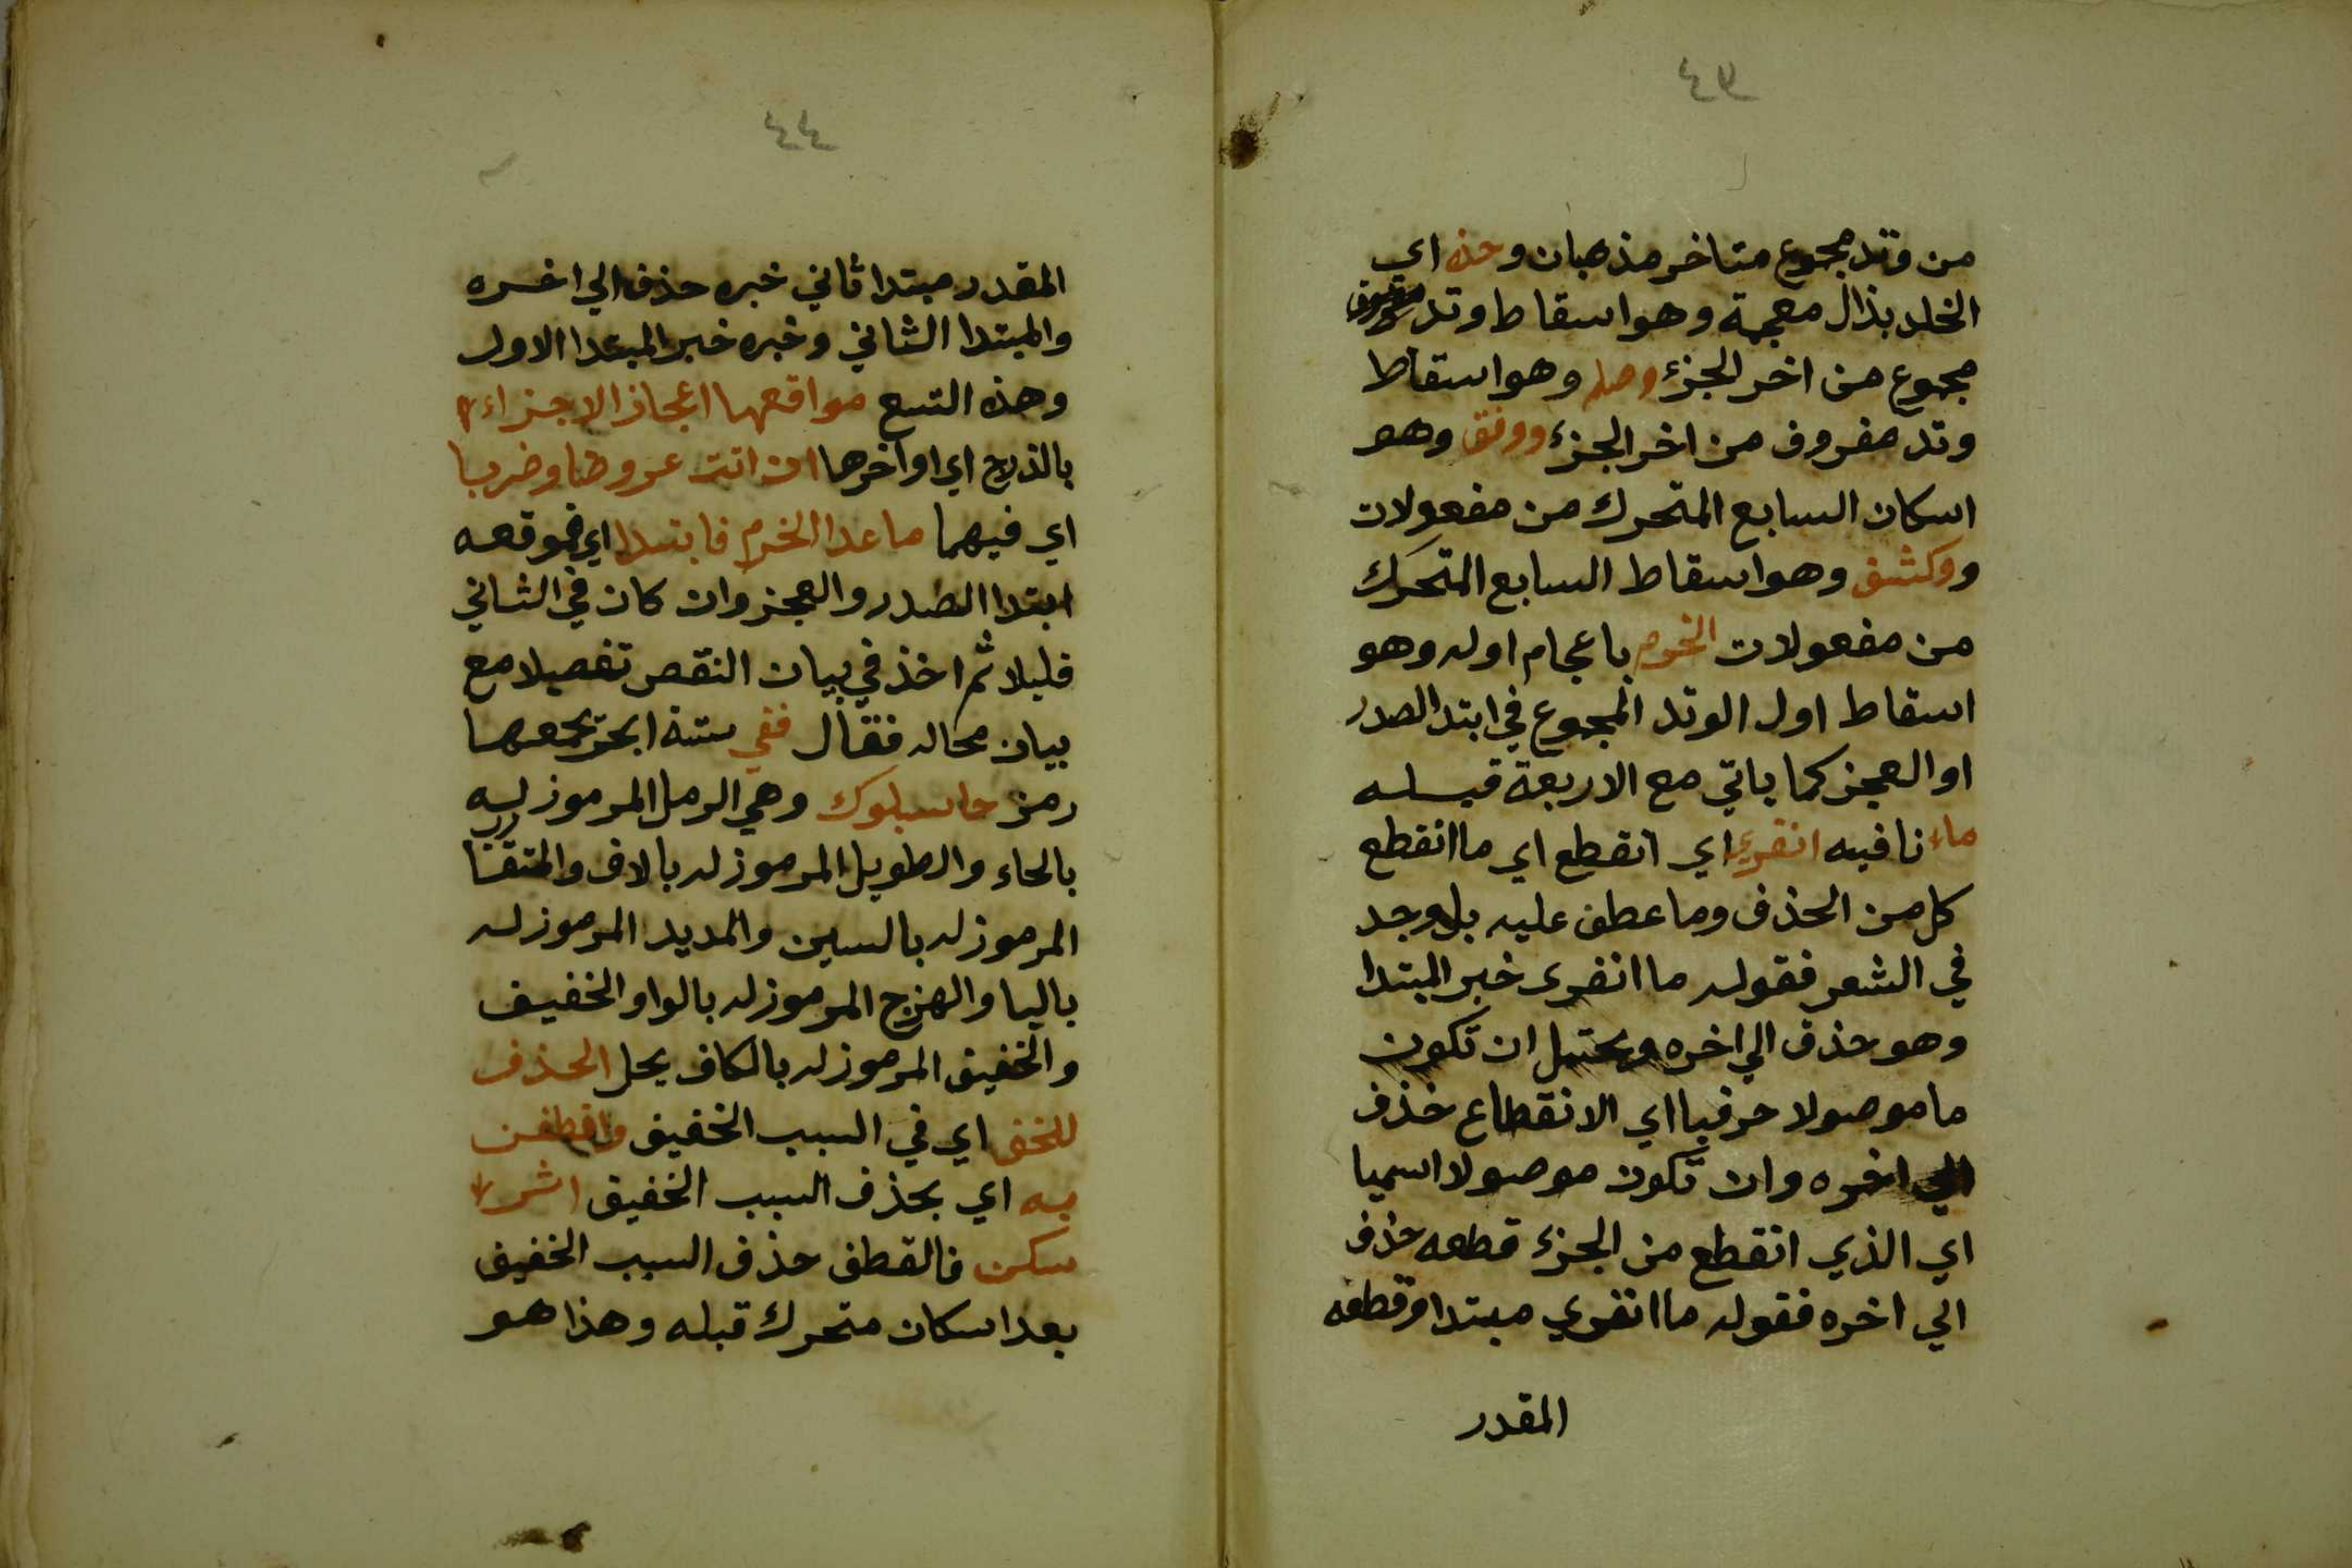 ٤٣
من وتد مجموع متاخر مذهبان وحذه اي
الخلد بذال معجمة وهو اسقاط وتد
مجموع من اخر الجزء وصلم وهو اسقاط
وتد مفروق من اخر الجزء ووقف وهو
اسكان السابع المتحرك من مفعولات
ووكشف وهو اسقاط السابع المتحرك
من مفعولات الخرم باعجام اوله وهو
اسقاط اول الوتد المجموع في ابتدا الصدر
او العجز كما ياتي مع الاربعة قبله
ماء نافيه انفري اي انقطع اي ما انقطع
كل من الحذف وما عطف عليه بل وجد
في الشعر فقوله ما انفرى خبر المبتدا
وهو حذف الي اخره ويحتمل ان تكون
ما موصولا حرفيا اي الانقطاع حذف
الي اخره وان تكون موصولا اسميا
اي الذي انقطع من الجزء قطعه حذف
الي اخره فقوله ما انفري مبتدا وقطعه
المقدر
٤٤
المقدر مبتدا ثاني خبره حذف الي اخره
والمبتدا الثاني وخبره خبر المبتدا الاول
وهذه التسع مواقعها اعجاز الاجزاء
بالذرج اي اواخرها ان اتت عروضا وضربا
اي فيهما ما عدا الخرم فابتدا اي فموقعه
ابتدا الصدر والعجز وان كان في الثاني
قليلا ثم اخذ في بيان النقص تفصيلا مع
بيان محاله فقال ففي ستة ابحر يجمعها
رمز حاسبلوك وهي الرمل المرموز له
بالحاء والطويل المرموز له بالاف والمتقارب
المرموز له بالسين والمديد المرموز له
باليا والهزج المرموز له بالواو الخفيف
والخفيف المرموز له بالكاف يحل الحذف
للخف اي في السبب الخفيف واقطفن
به اي بحذف السبب الخفيف اثر
سكن فالقطف حذف السبب الخفيف
بعد اسكان متحرك قبله وهذا هو